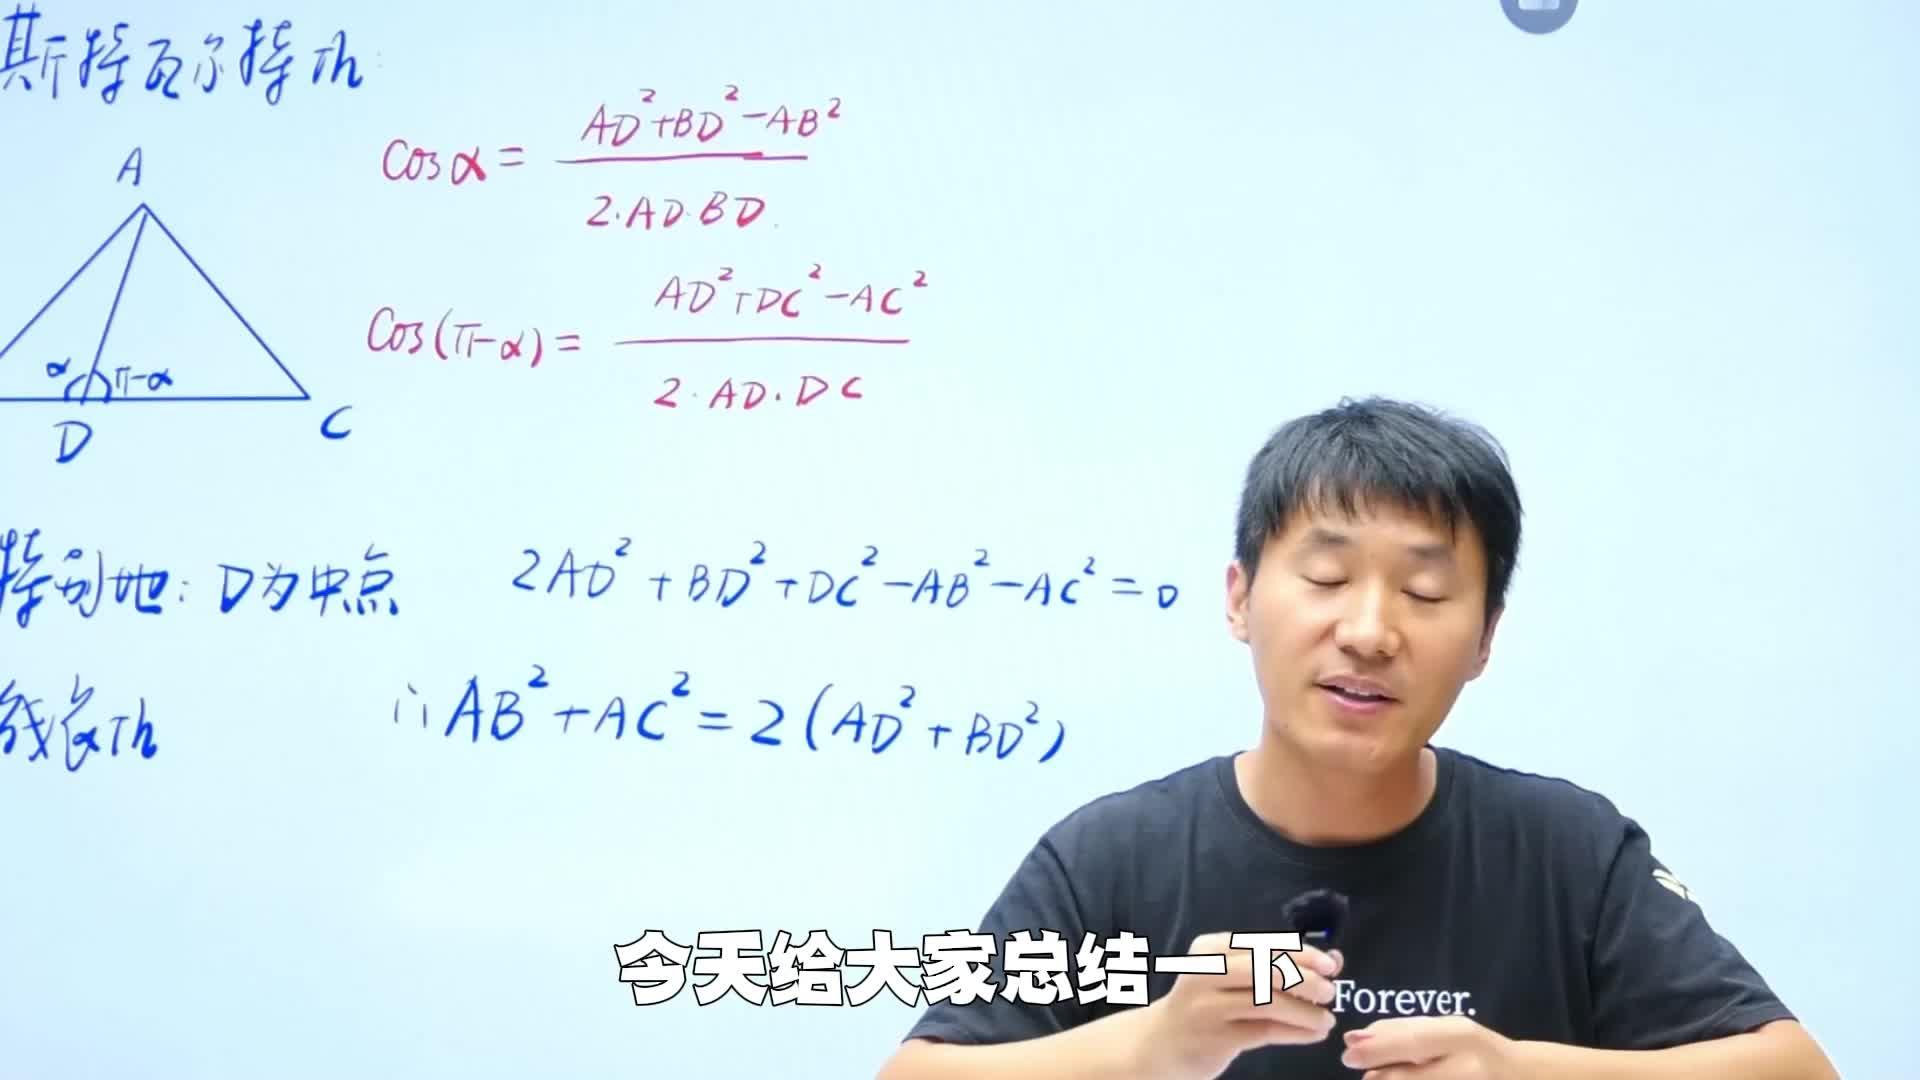 斯特瓦尔特Th:
A
cosα = AD²+BD²-AB² / 2·AD·BD
cos(π-α) = AD²+DC²-AC² / 2·AD·DC
α π-α
D C
特别地: D为中点 2AD²+BD²+DC²-AB²-AC²=0
线长Th ∴ AB²+AC²=2(AD²+BD²)
今天给大家总结一下
Forever.